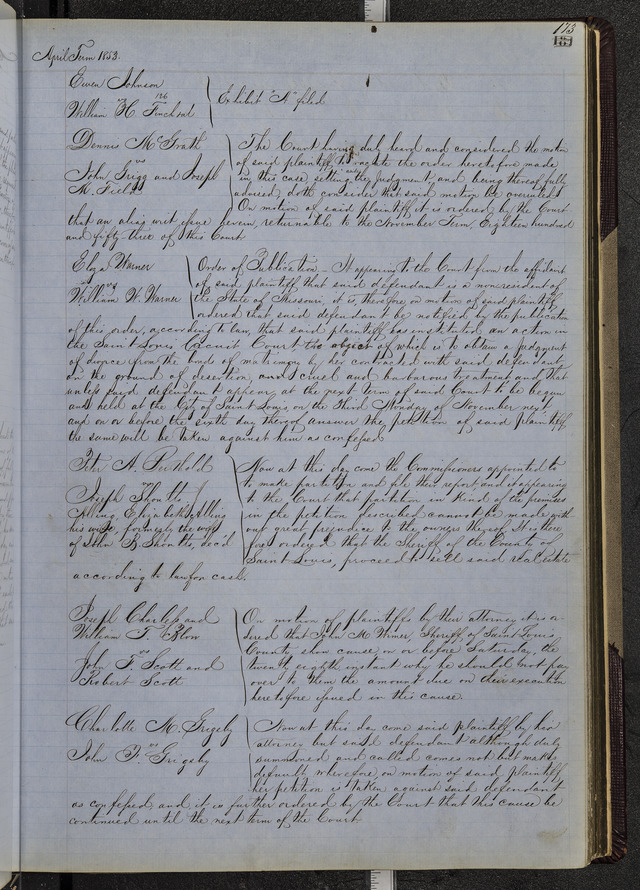 173
187
April Term 1853.
Ewen Johnson
vs 126
William H. Finch
Exhibit "A" filed
Dennis McGrath
vs
John Grigg and Joseph
M. Fields
The Court having duly heard and considered the motion
of said plaintiff to vacate the order heretofore made
in this case, setting the judgment, and being thereof fully
advised, doth consider that said motion be overruled
On motion of said plaintiff it is ordered by the Court
that an alias writ issue herein, returnable to the November Term, Eighteen hundred
and fifty three of this Court
Eliza Warner
vs
William W. Warner
Order of Publication - It appearing to the Court from the affidavit
of said plaintiff that said defendant is a non resident of
the State of Missouri, it is, therefore on motion of said plaintiff
ordered that said defendant be notified by the publication
of this order, according to law, that said plaintiff has instituted an action in
the Saint Louis Circuit Court the object of which is to obtain a judgment
of divorce from the bonds of matrimony by her contracted with said defendant
on the ground of desertion, and cruel and barbarous treatment and that
unless said defendant appear at the next term of said Court to be begun
and held at the City of Saint Louis on the Third Monday of November next
and on or before the sixth day thereof answer the petition of said plaintiff,
the same will be taken against him as confessed
Peter A. Berthold
vs
Joseph Shoults
Allins, Elizabeth Allins
his wife, formerly the wife
of John B Shoults, dec'd
Now at this day come the Commissioners appointed to
to make partition and file their report and it appearing
to the Court that partition in kind of the premises
in the petition described cannot be made with
out great prejudice to the owners thereof It is there
fore ordered that the Sheriff of the County of
Saint Louis, proceed to sell said real estate
according to law for cash.
Joseph Charless and
William T. Blow
vs
John F. Scott and
Robert Scott
On motion of plaintiffs by their attorney it is or
dered that John M Wimer, Sheriff of Saint Louis
County, show cause, on or before Saturday, the
twenty eighth instant why he should not pay
over to them the amount due on their execution
heretofore issued in this cause
Charlotte M. Grigsby
vs
John F. Grigsby
Now at this day come said plaintiff by her
attorney but said defendant although duly
summoned and called comes not but makes
default, wherefore, on motion of said plaintiff,
her petition is taken against said defendant
as confessed, and it is further ordered by the Court that this cause be
continued until the next term of the Court